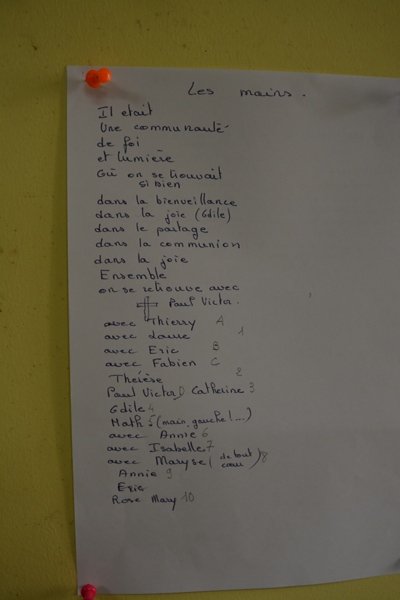 Les mains.
Il etait
Une communauté
de foi
et lumière
Où on se trouvait
si bien
dans la bienveillance
dans la joie (Odile)
dans le partage
dans la communion
dans la joie
Ensemble
on se retrouve avec
Paul Victor.
avec Thierry A
avec Laure 1
avec Eric B
avec Fabien C
Thérèse 2
Paul Victor D Catherine 3
Odile 4
Math 5 (main gauche!...)
avec Annie 6
avec Isabelle 7
avec Maryse (de tout cœur) 8
Annie 9
Eric
Rose Mary 10